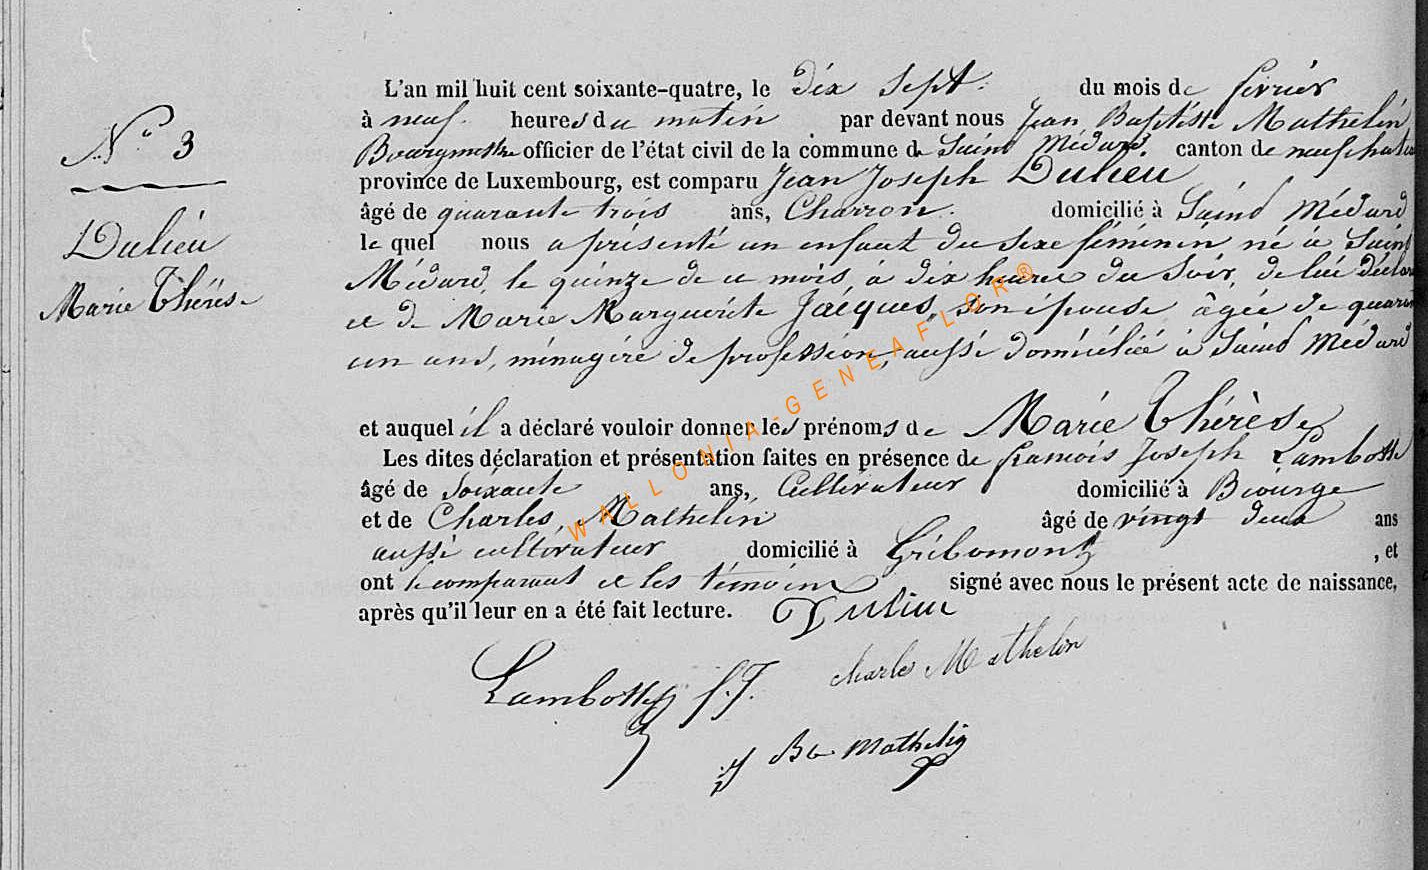 N° 3
Dulieu
Marie Thérèse
L'an mil huit cent soixante-quatre, le dix sept du mois de février
à neuf heures du matin par devant nous Jean Baptiste Mathelin
Bourgmestre officier de l'état civil de la commune de Saint Médard, canton de neufchateau
province de Luxembourg, est comparu Jean Joseph Dulieu
âgé de quarante trois ans, Charron domicilié à Saint Médard
le quel nous a présenté un enfant du sexe féminin né à Saint
Médard, le quinze de ce mois, à dix heures du soir, de lui déclarant
et de Marie Marguerite Jacques, son épouse âgée de quarante
un ans, ménagère de profession, aussi domiciliée à Saint Médard
et auquel il a déclaré vouloir donner les prénoms de Marie Thérèse
Les dites déclaration et présentation faites en présence de françois Joseph Lambotte
âgé de soixante ans, Cultivateur domicilié à Biourge
et de Charles Mathelin âgé de vingt deux ans
aussi cultivateur domicilié à Gribomont, et
ont le comparant et les témoins signé avec nous le présent acte de naissance,
après qu'il leur en a été fait lecture. Dulieu
Lambotte f. J. charles Mathelin
J Bte Mathelin
WALLONIA-GENEAFLOR®